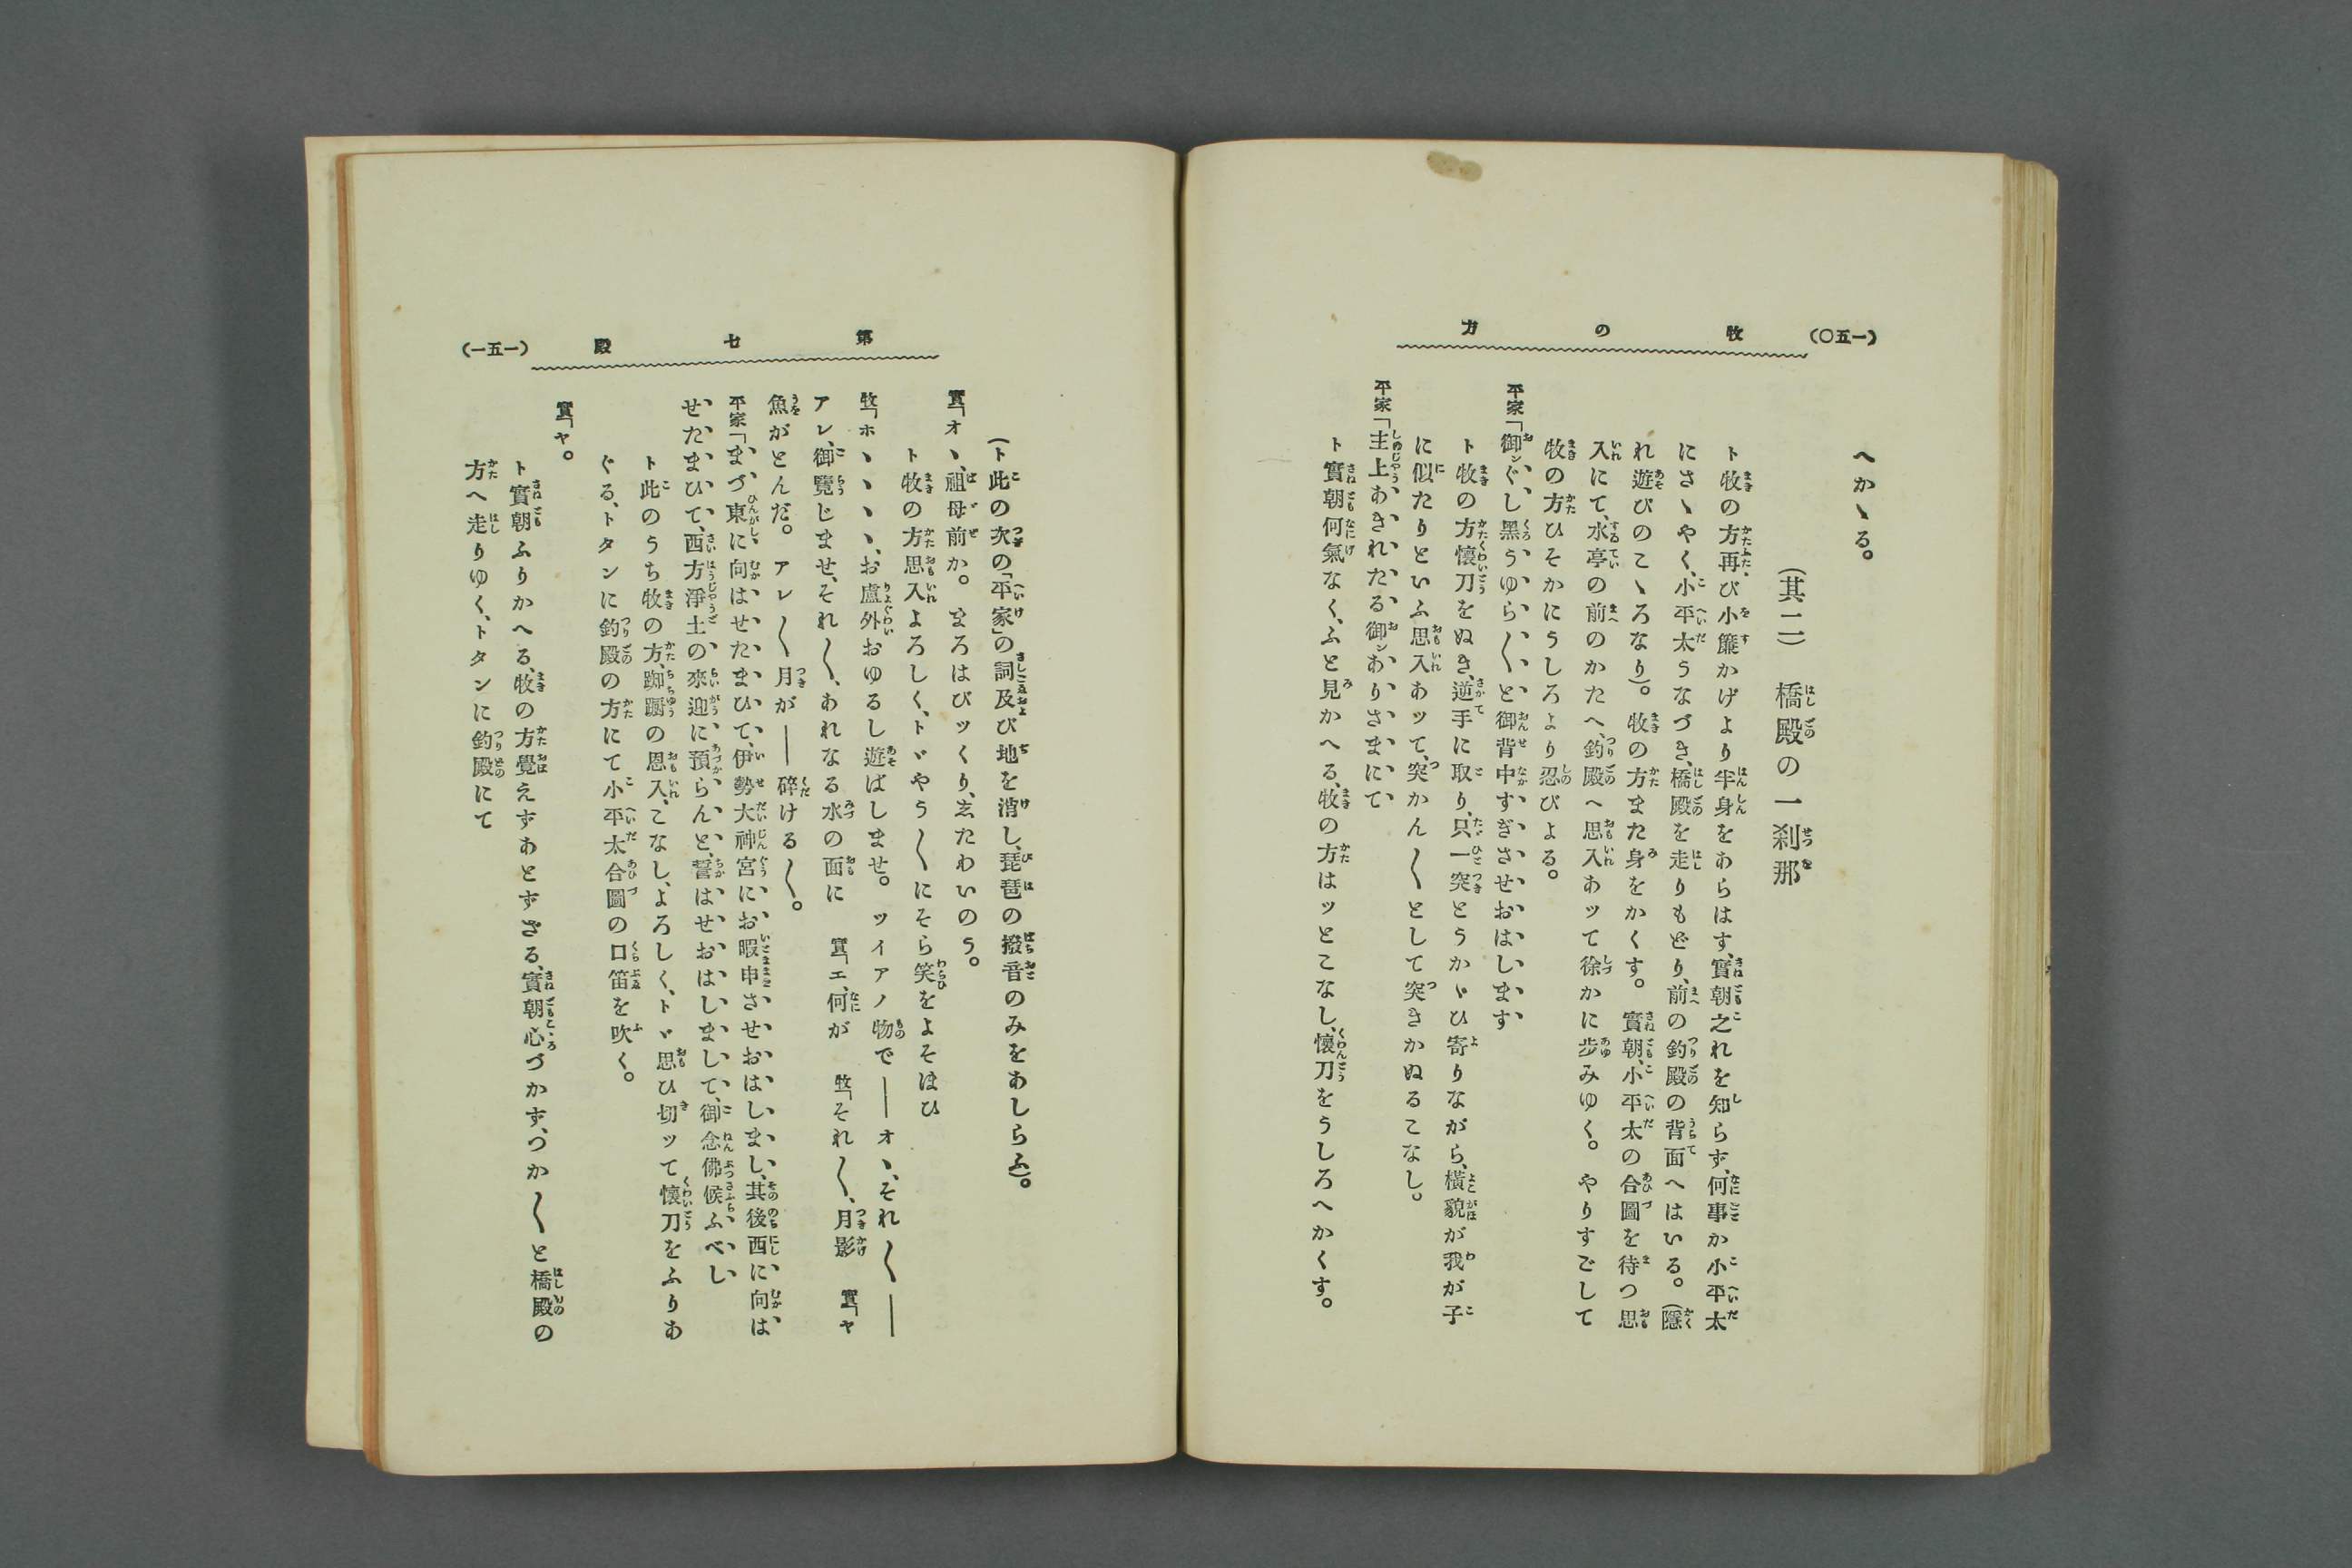 (一五〇)
牧の方
へかゝる。
(其二) 橋殿の一刹那
ト牧の方再び小簾かげより半身をあらはす、實朝之れを知らず、何事か小平太
にさゝやく、小平太うなづき、橋殿を走りもどり、前の釣殿の背面へはいる。(隱
れ遊びのこゝろなり)。 牧の方また身をかくす。 實朝、小平太の合圖を待つ思
入にて、水亭の前のかたへ、釣殿へ思入あッて徐かに歩みゆく。 やりすごして
牧の方ひそかにうしろより忍びよる。
平家「御ンぐし黑うゆら〱と御背中すぎさせおはします
ト牧の方懷刀をぬき、逆手に取り、只一突とうかゞひ寄りながら、橫貌が我が子
に似たりといふ思入あッて、突かん〱として突きかぬるこなし。
平家「主上あきれたる御ンありさまにて
ト實朝何氣なく、ふと見かへる、牧の方はッとこなし、懷刀をうしろへかくす。
第七段
(一五一)
(ト此の次の「平家」の詞及び地を消し、琵琶の撥音のみをあしらふ)。
實「オヽ、祖母前か。 まろはびッくり、ゑたわいのう。
ト牧の方思入よろしく、トヾやう〱にそら笑をよそほひ
牧「ホヽヽヽヽ、お慮外おゆるし遊ばしませ。 ツイアノ物で――オヽ、それ〱――
アレ、御覽じませ、それ〱、あれなる水の面に 實「エ、何が 牧「それ〱、月影 實「ヤ
魚がとんだ。 アレ〱月が――碎ける〱。
平家「まづ東に向はせたまひて、伊勢大神宮にお暇申させおはしまし、其後西に向は
せたまひて、西方淨土の來迎に預らんと、誓はせおはしまして、御念佛候ふべし
ト此のうち牧の方、踟躕の思入、こなし、よろしく、トヾ思ひ切ッて懷刀をふりあ
ぐる、トタンに釣殿の方にて小平太合圖の口笛を吹く。
實「ヤ。
ト實朝ふりかへる、牧の方覺えずあとずざる、實朝心づかず、つか〱と橋殿の
方へ走りゆく、トタンに釣殿にて